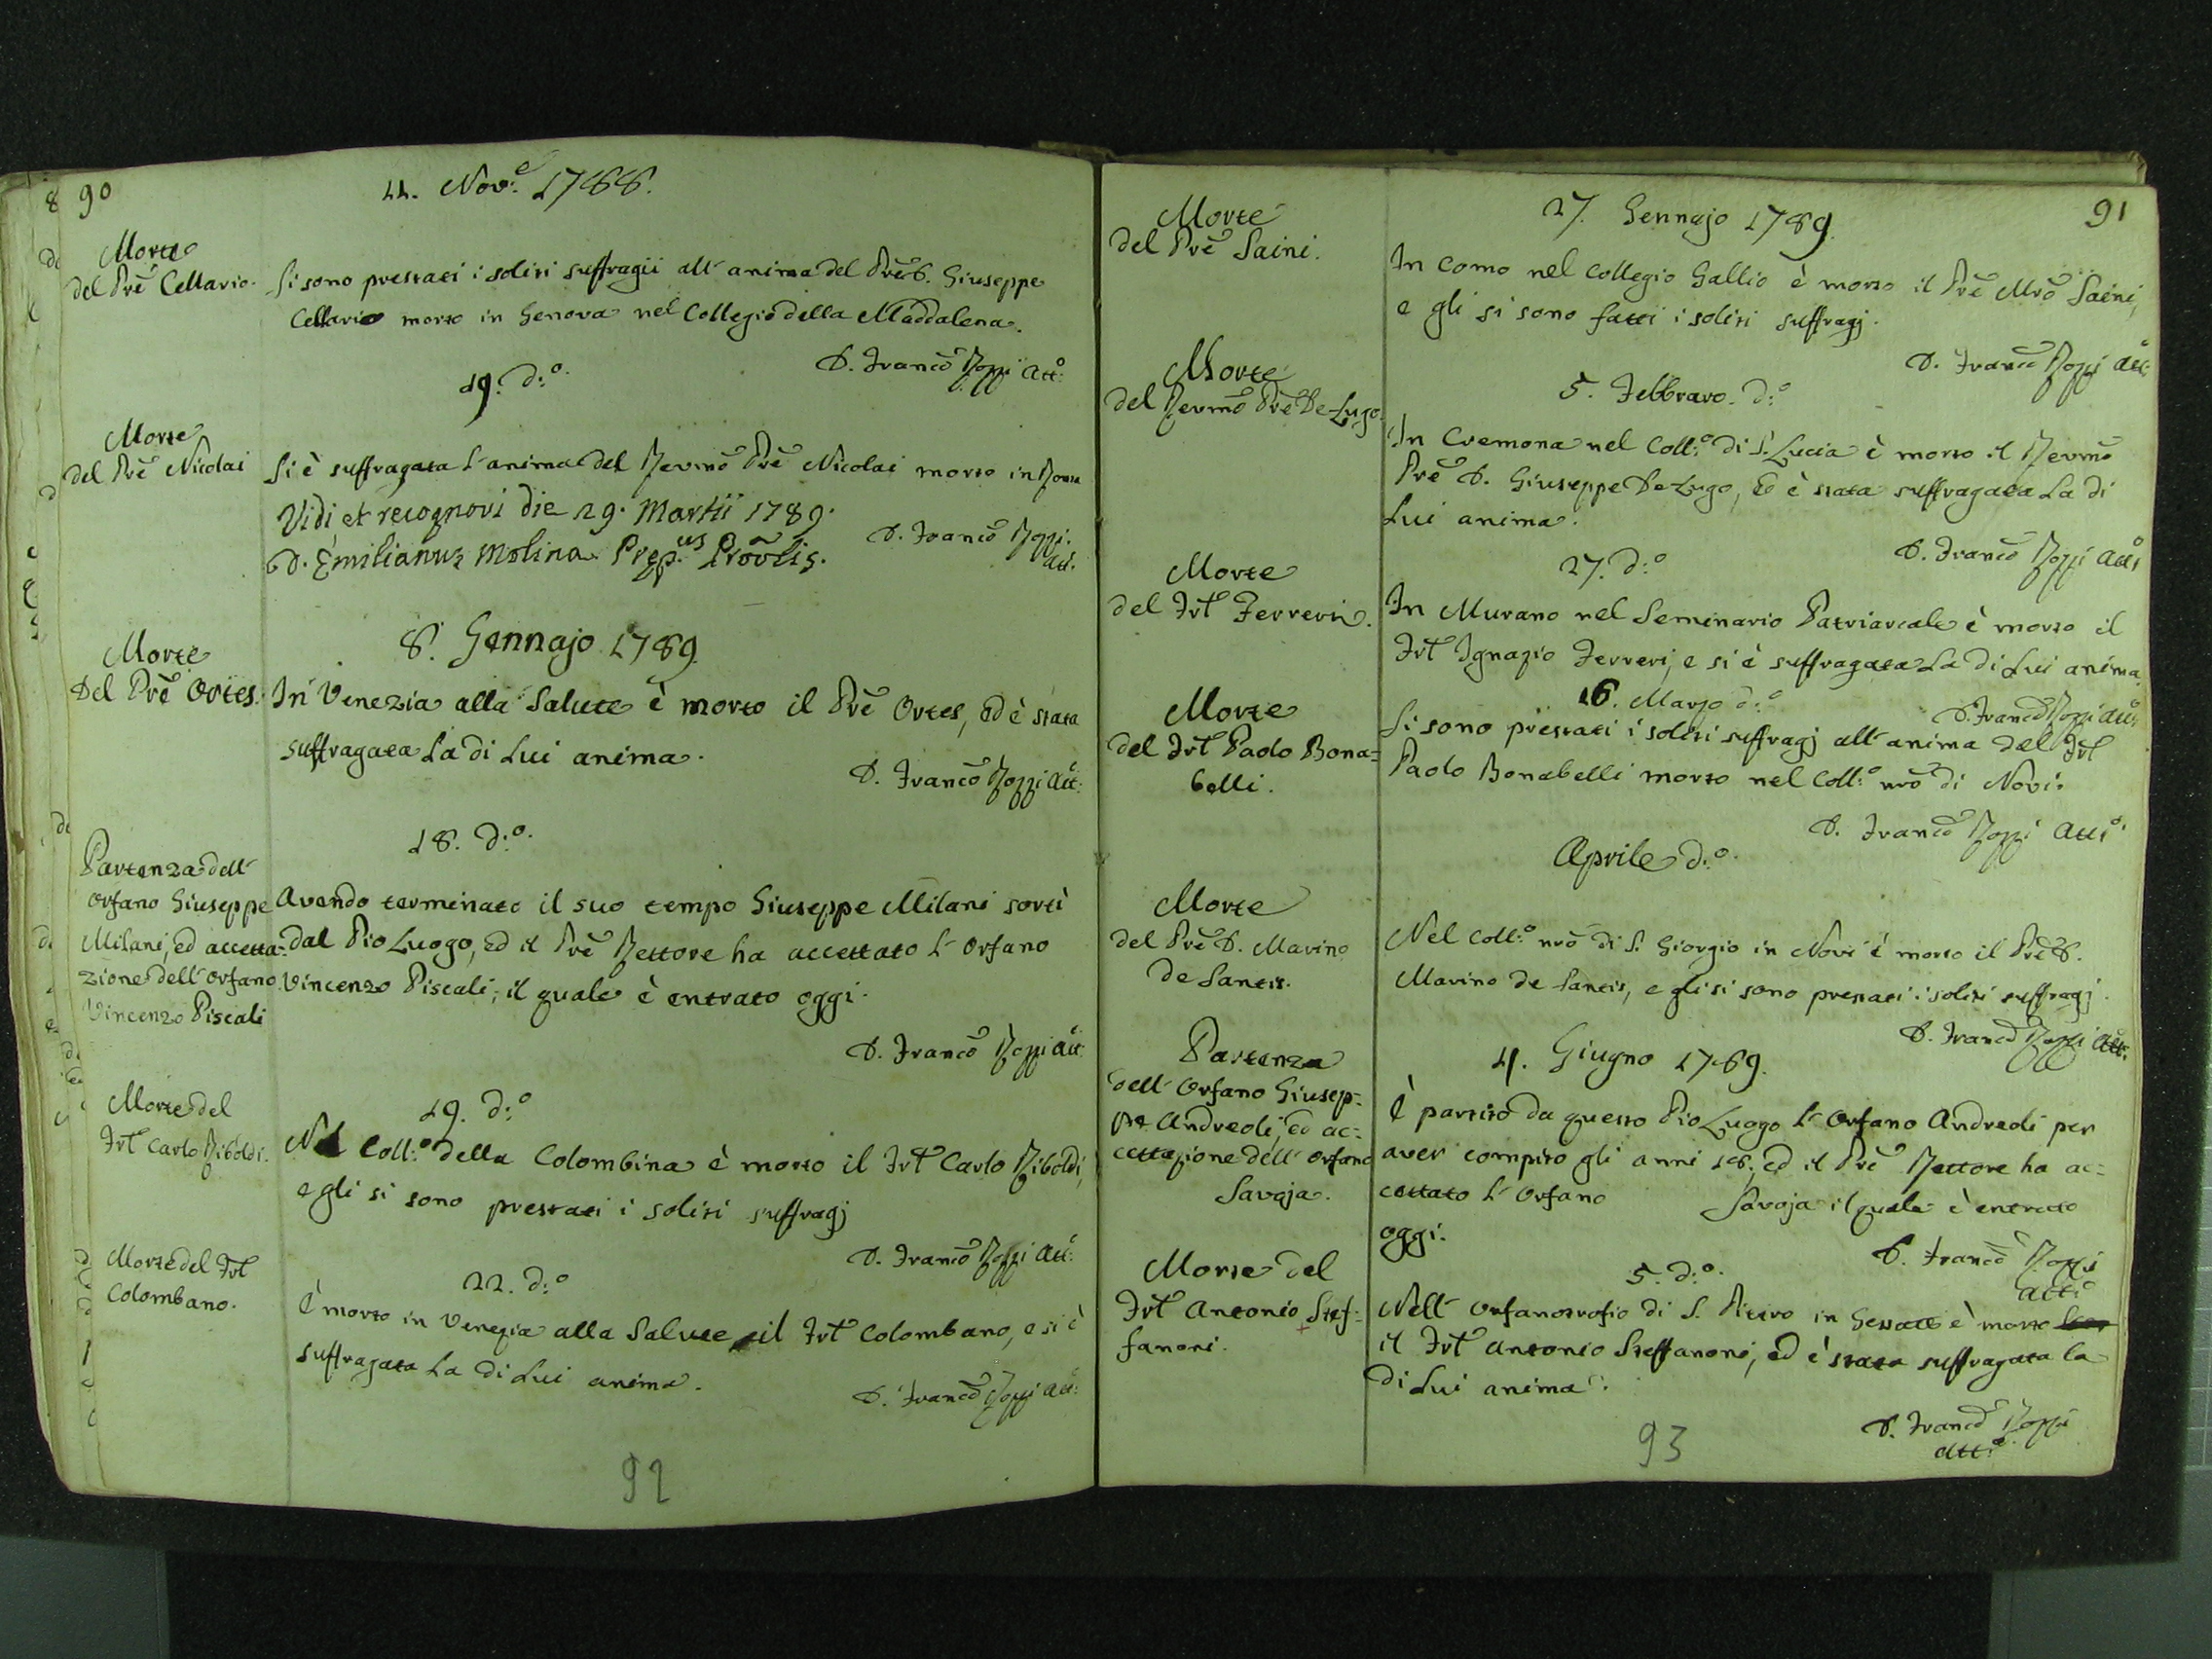 90
11. Nov.e 1788.
Morte
del Prē Cellario.
Si sono prestati i soliti suffragii all'anima del Prē D. Giuseppe
Cellario morto in Genova nel Collegio della Maddalena.
D. Francō Rozzi Att:o
19. d:o
Morte
del Prē Nicolai
Si è suffragata l'anima del Revmō Prē Nicolai morto in Roma
Vidi et recognovi die 29. Martii 1789.
D. Francō Rozzi.
Att.
D. Emilianus Molina Prep.us Provlis.
8. Gennajo 1789
Morte
Del Prē Ortes.
In Venezia alla Salute è morto il Prē Ortes, ed è stata
suffragata la di Lui anima.
D. Francō Rozzi Att:
18. d:o
Partenza dell'
Orfano Giuseppe
Milani, ed accetta=
zione dell'Orfano
Vincenzo Piscali
Avendo terminato il suo tempo Giuseppe Milani sortì
dal Pio Luogo, ed il Prē Rettore ha accettato l'Orfano
Vincenzo Piscali, il quale è entrato oggi.
D. Francō Rozzi Att:
19. d:o
Morte del
Frt Carlo Riboldi.
Nel Coll:o della Colombina è morto il Frt Carlo Riboldi,
e gli si sono prestati i soliti suffragj
D. Francō Rozzi Att:
22. d:o
Morte del Frt
Colombano.
È morto in Venezia alla Salute il Frt Colombano, e si è
suffragata la di Lui anima.
D. Francō Rozzi Att:
92
91
27. Gennajo 1789
Morte
del Prē Saini.
In Como nel Collegio Gallio è morto il Prē Mrō Saini,
e gli si sono fatti i soliti suffragj.
D. Francō Rozzi Att:
5. Febbraro. d:o
Morte
del Revmō Prē De-Lugo.
In Cremona nel Coll:o di S. Lucia è morto il Revmō
Prē D. Giuseppe De-Lugo, ed è stata suffragata la di
Lui anima.
D. Francō Rozzi Att:o
27. d:o
Morte
del Frt Ferreri.
In Murano nel Seminario Patriarcale è morto il
Frt Ignazio Ferreri, e si è suffragata la di Lui anima.
D. Francō Rozzi Att:
16. Marzo d:o
Morte
del Frt Paolo Bona=
belli.
Si sono prestati i soliti suffragj all'anima del Frt
Paolo Bonabelli morto nel Coll:o nrō di Novi.
D. Francō Rozzi Att:o
Aprile d:o
Morte
del Prē D. Marino
de Santis.
Nel Coll:o nrō di S. Giorgio in Novi è morto il Prē D.
Marino de Santis, e gli si sono prestati i soliti suffragj.
D. Francō Rozzi Att:
4. Giugno 1789.
Partenza
dell'Orfano Giusep=
pe Andreoli, ed ac=
cettazione dell'Orfano
Savoja.
È partito da questo Pio Luogo l'Orfano Andreoli per
aver compito gli anni 18., ed il Prē Rettore ha ac=
cettato l'Orfano Savoja il quale è entrato
oggi.
D. Francō Rozzi
Att:o
5. d:o
Morte del
Frt Antonio Stef=
fanoni.
Nell'Orfanotrofio di S. Pietro in Gessate è morto
il Frt Antonio Steffanoni, ed è stata suffragata la
di Lui anima.
D. Francō Rozzi
Att:o
93